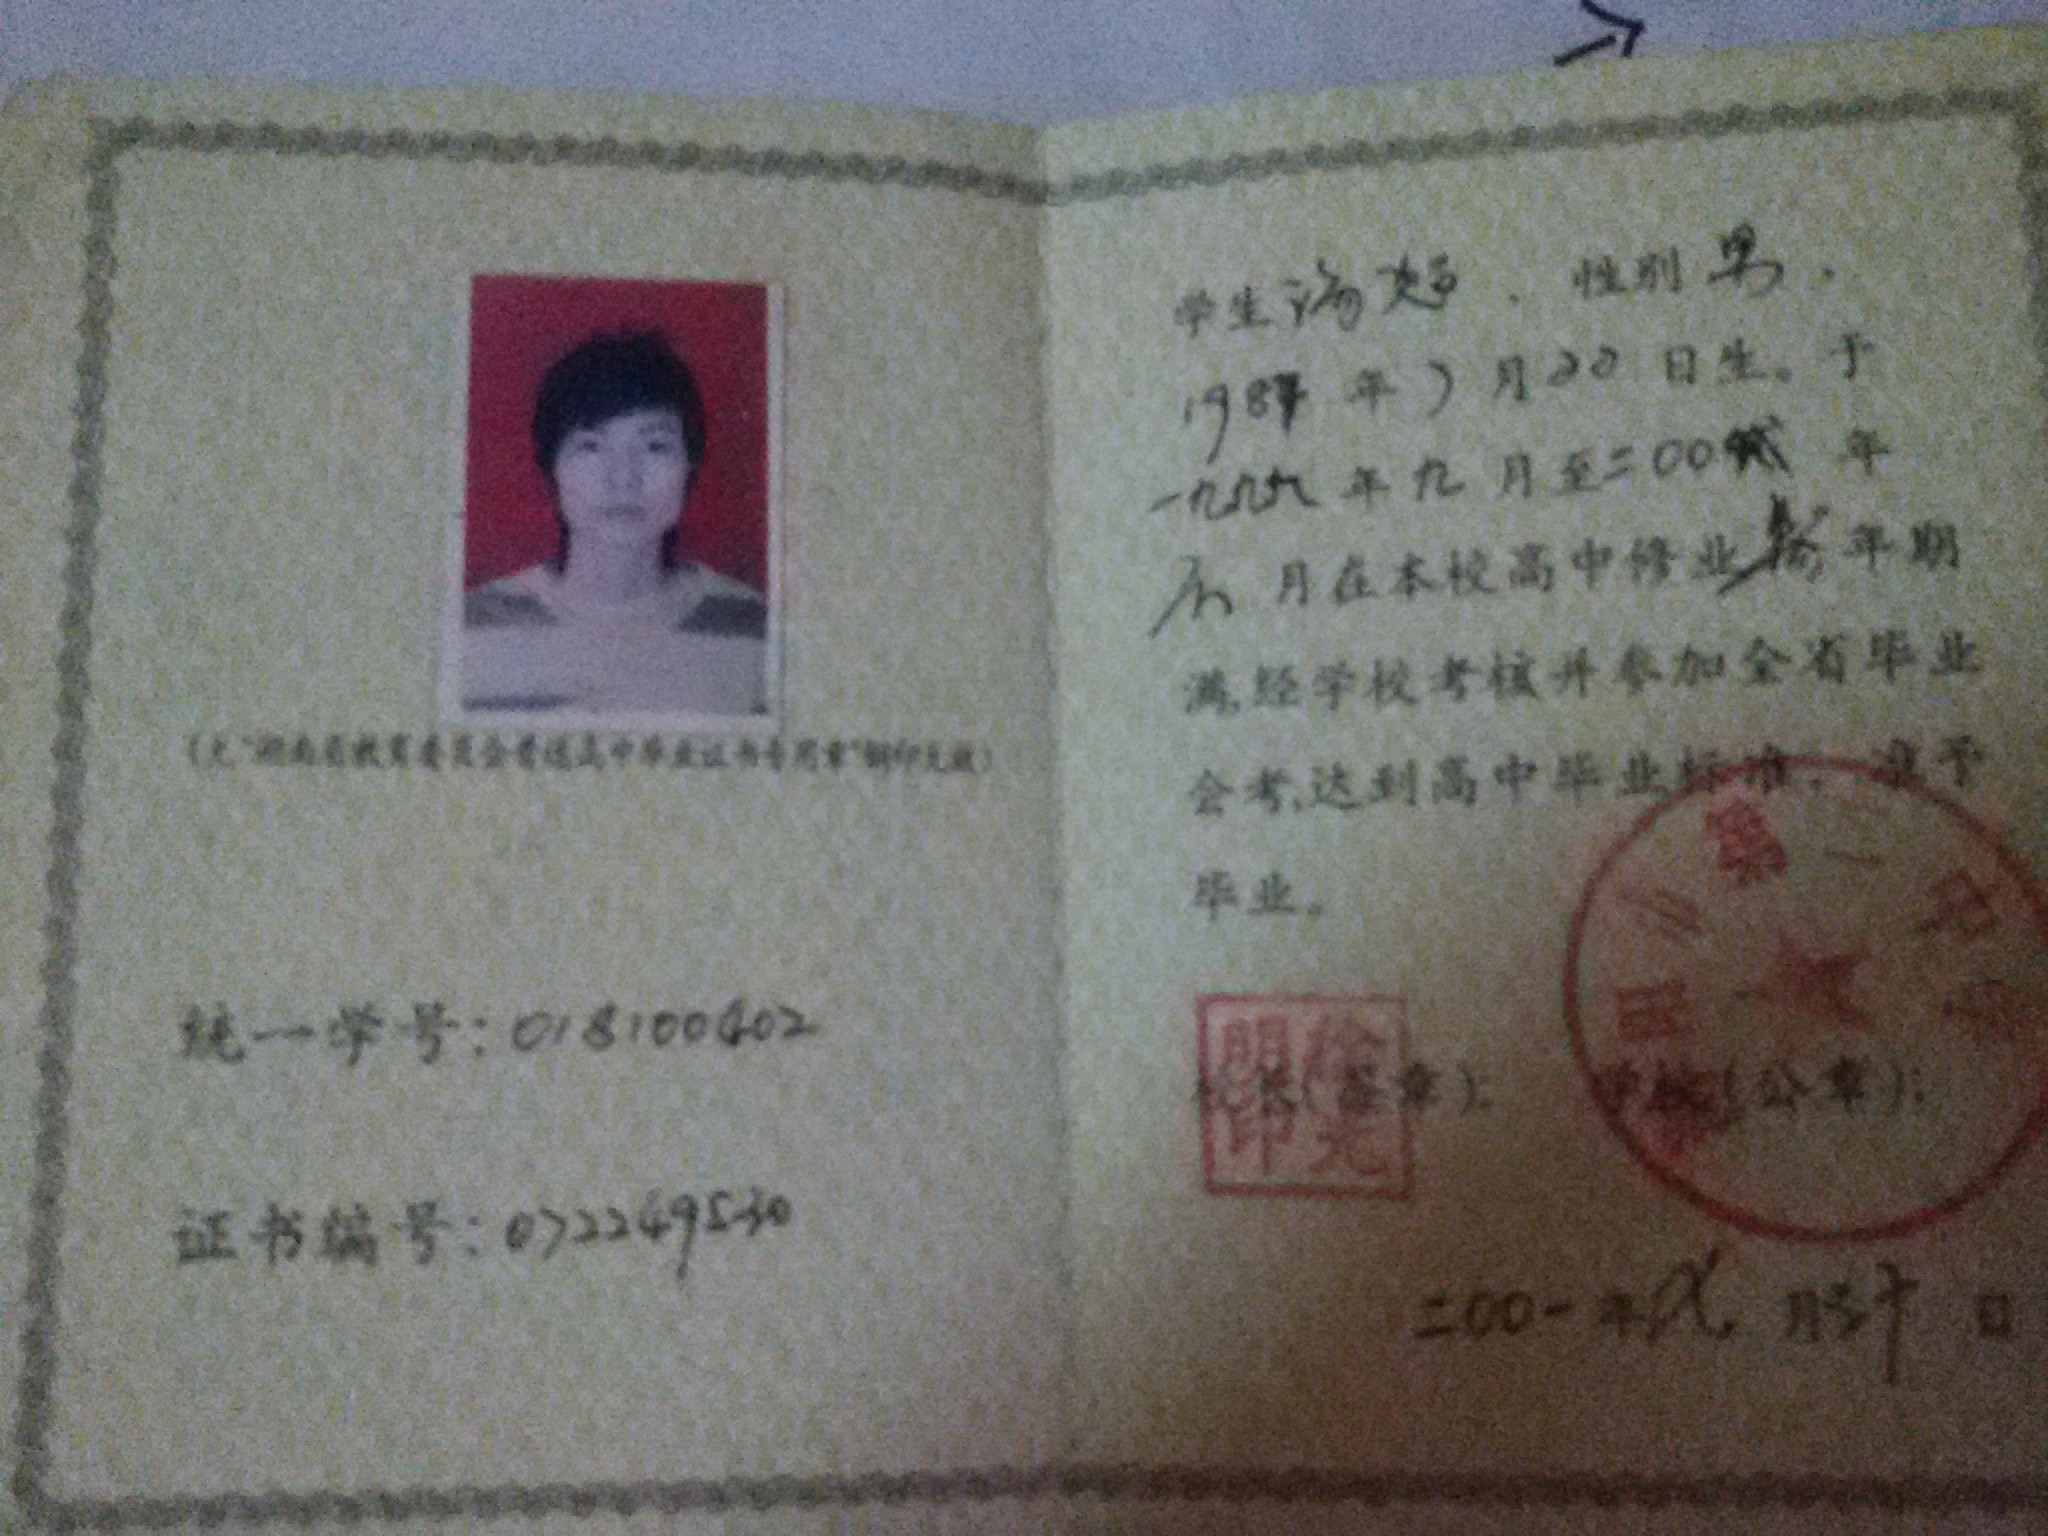 (无"湖南省教育委员会普通高中毕业证书专用章"钢印无效)
统一学号:018100402
证书编号:0722249530
学生汤超,性别男,
198 年7月20日生。于
一九九九年九月至二00 年
月在本校高中修业 年期
满,经学校考核并参加全省毕业
会考,达到高中毕业标准,准予
毕业。
校长(签章): 学校(公章):
第一中
明印
二00一年 月 日